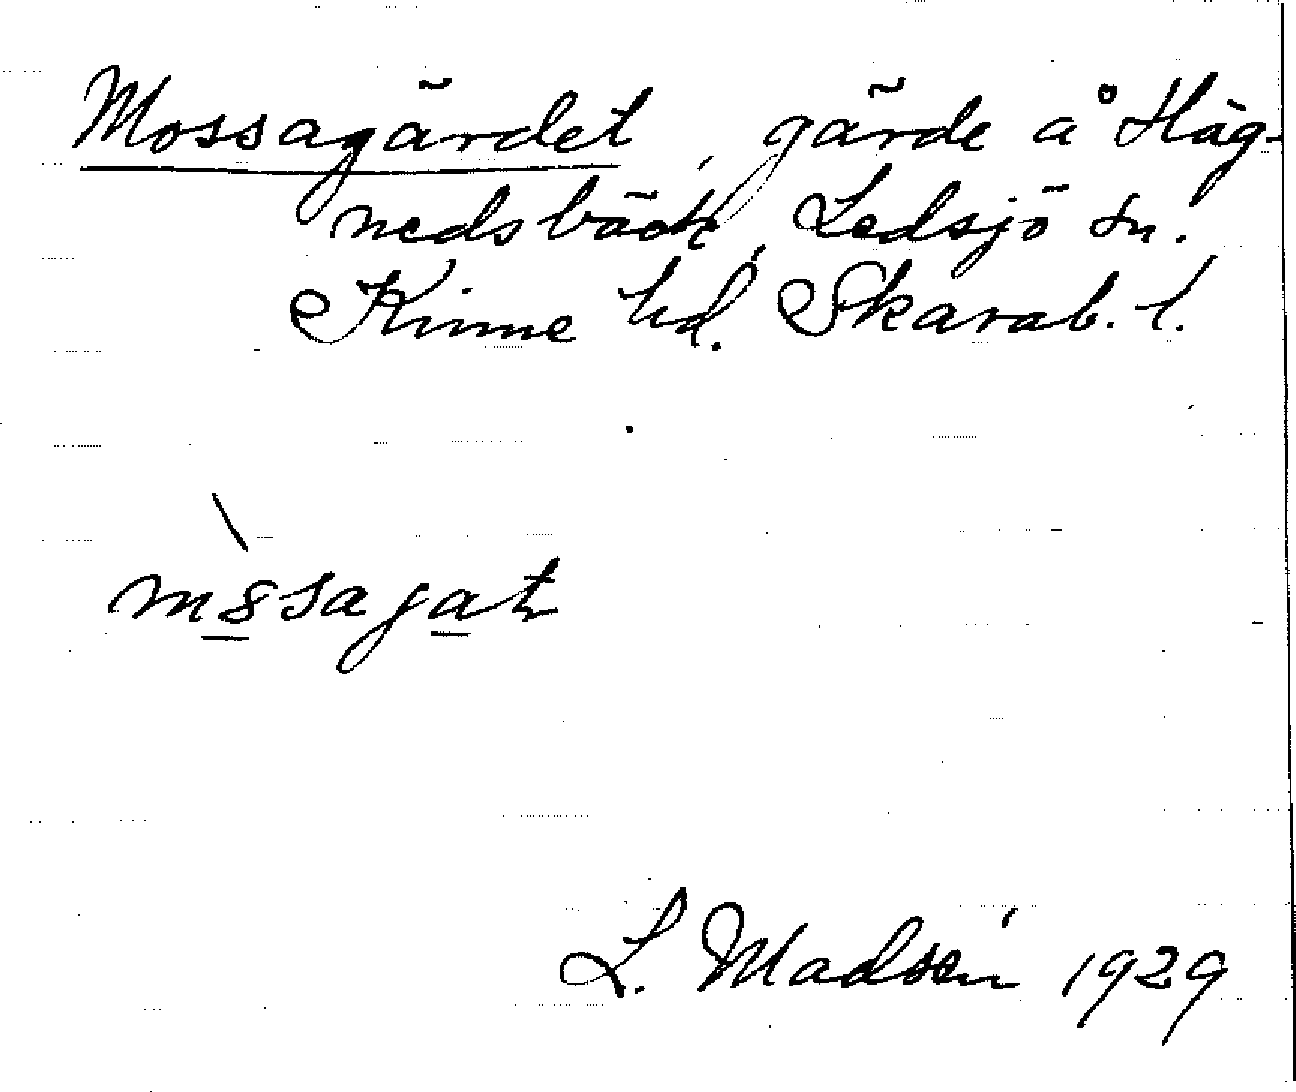 Mossagärdet, gärde å Häg-
nedsbäck, Ledsjö sn.
Kinne hd. Skarab. l.
L. Madsén 1929